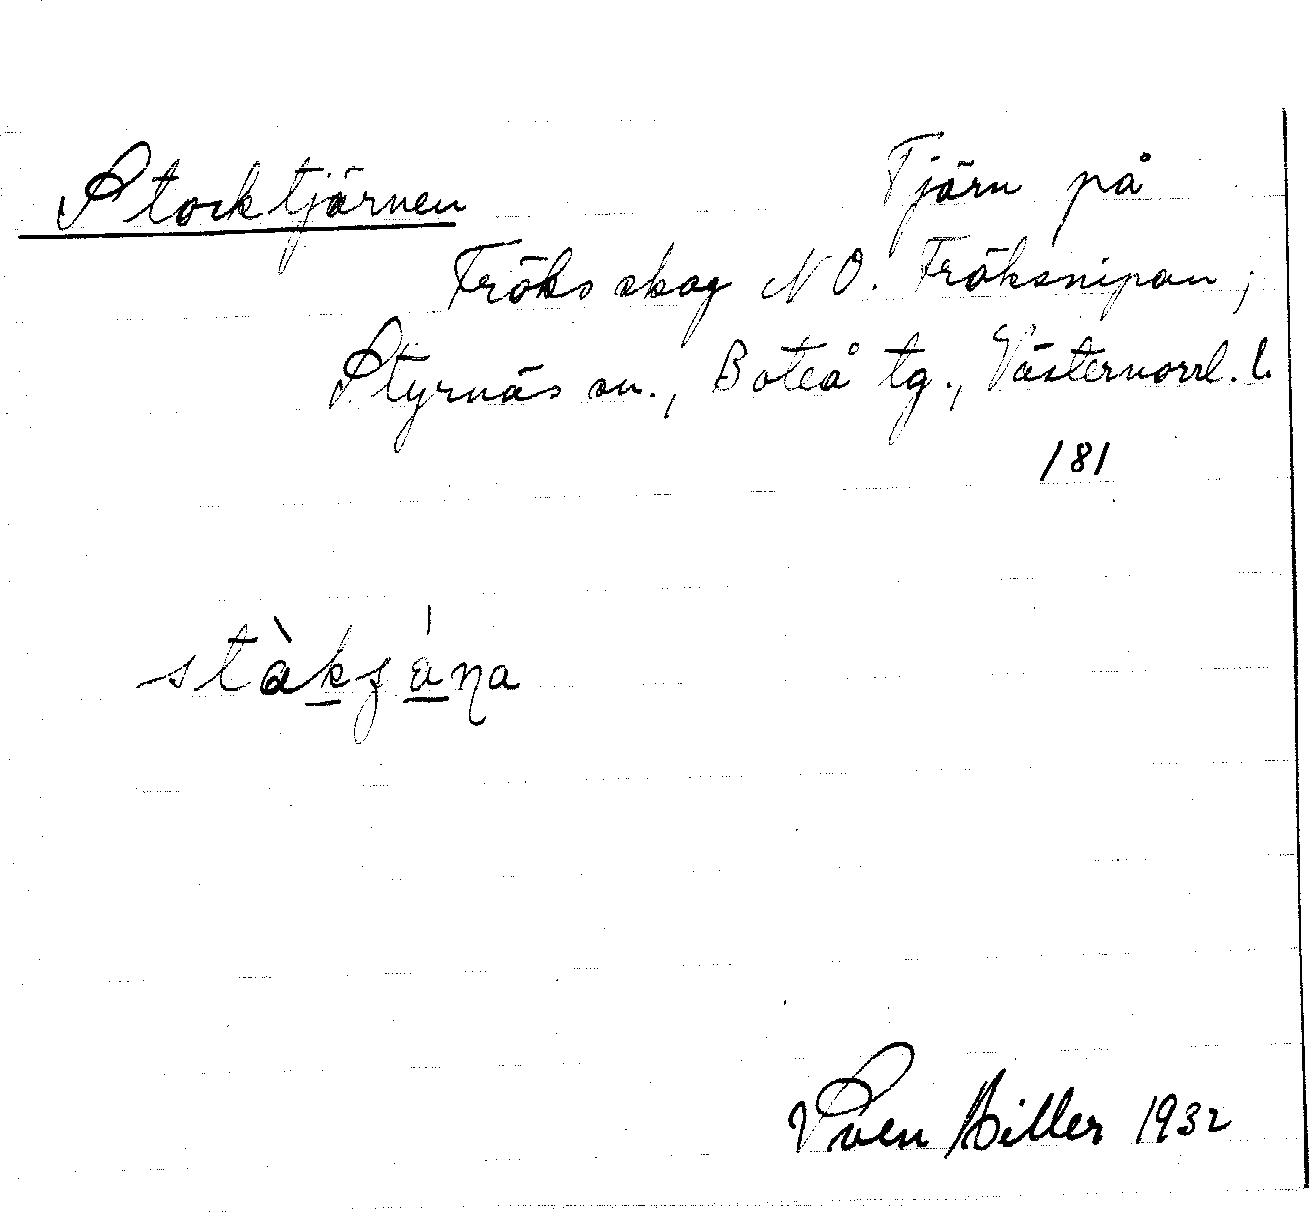 Stocktjärnen Tjärn på
Fröks skog NO. Fröksnipan;
Styrnäs sn., Boteå tg., Västernorrl. l.
181
Sven Hiller 1932